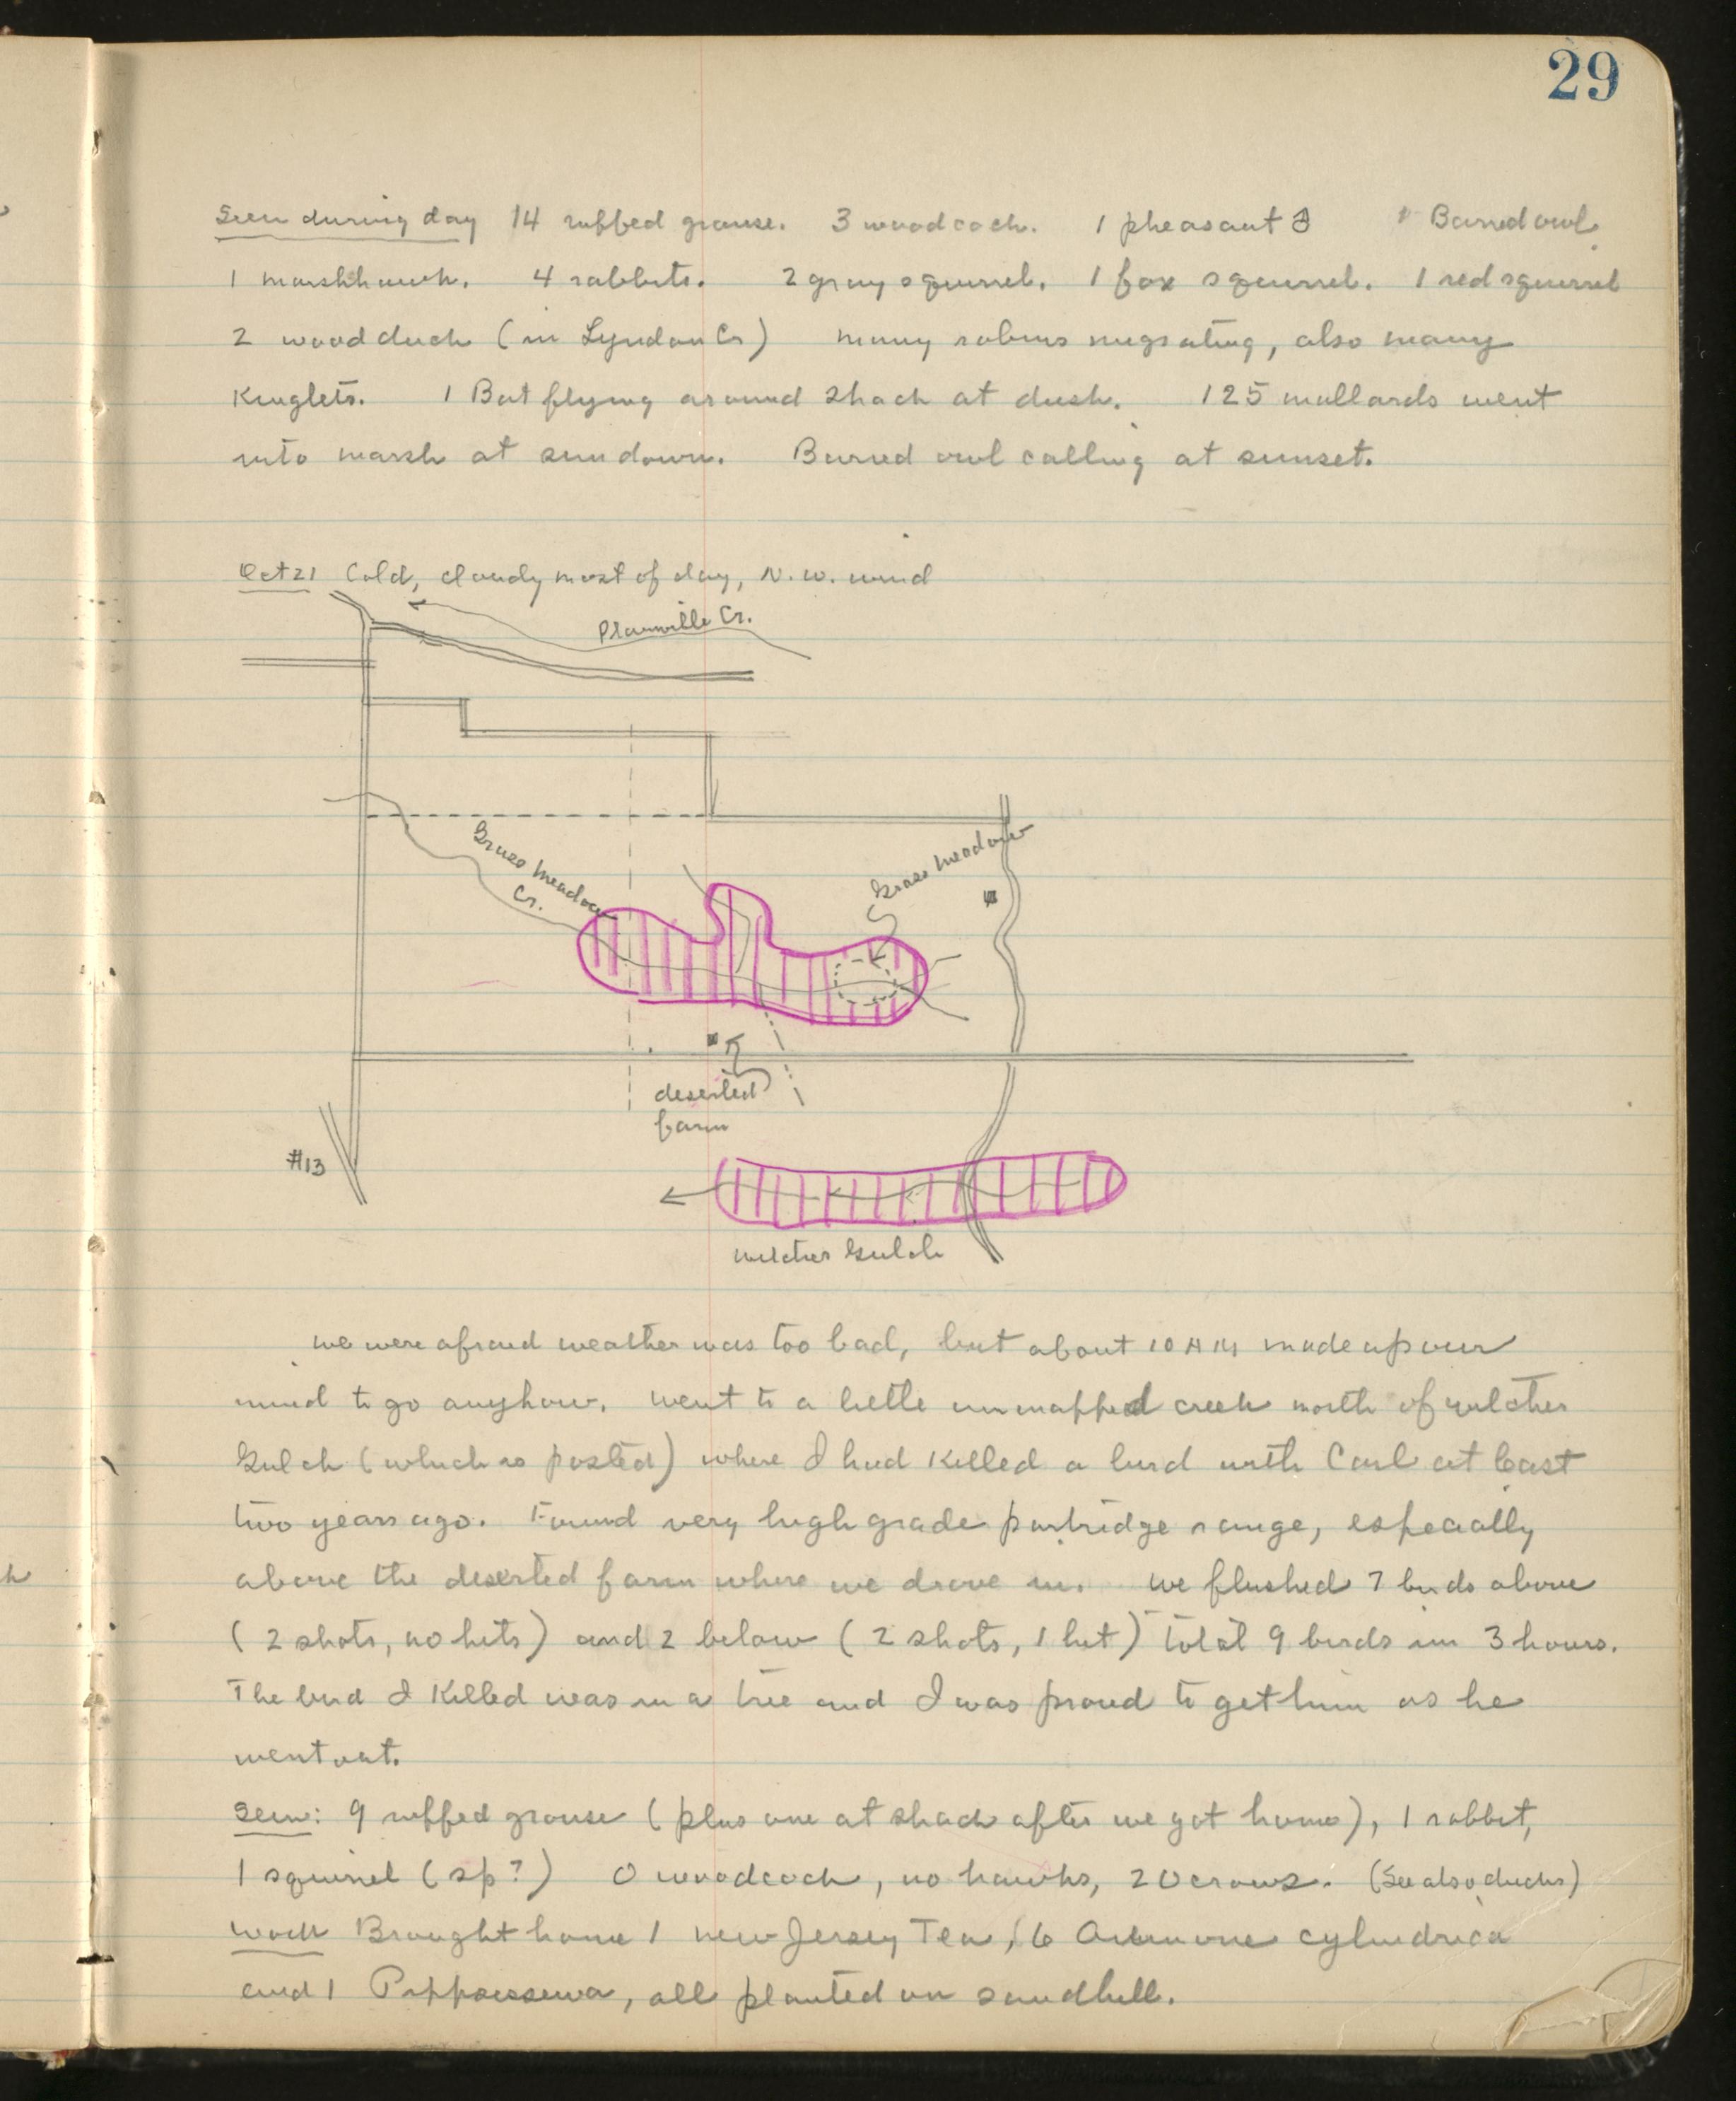 29
Seen during day 14 ruffed grouse. 3 woodcock. 1 pheasant ♂ 1 Barred owl
1 marshhawk. 4 rabbits. 2 gray squirrel. 1 fox squirrel. 1 red squirrel
2 wood duck (in Lyndon Cr) many robins migrating, also many
Kinglets. 1 Bat flying around shack at dusk. 125 mallards went
into marsh at sundown. Barred owl calling at sunset.
Oct 21 Cold, cloudy most of day, N.W. wind
Plainville Cr.
Grass Meadow
Cr.
Grass Meadow
deserted
farm
#13
Gulch
we were afraid weather was too bad, but about 10 AM made up our
mind to go anyhow. Went to a little unmapped creek north of
Gulch (which is posted) where I had killed a bird with Carl at least
two years ago. Found very high grade partridge range, especially
above the deserted farm where we drove in. We flushed 7 birds above
(2 shots, no hits) and 2 below (2 shots, 1 hit) Total 9 birds in 3 hours.
The bird I killed was in a tree and I was proud to get him as he
went out.
Seen: 9 ruffed grouse (plus one at shack after we got home), 1 rabbit,
1 squirrel (sp?) 0 woodcock, no hawks, 20 crows. (See also ducks)
Work Brought home 1 New Jersey Tea, 6 Anemone cylindrica
and 1 Pippsissewa, all planted on sandhill.